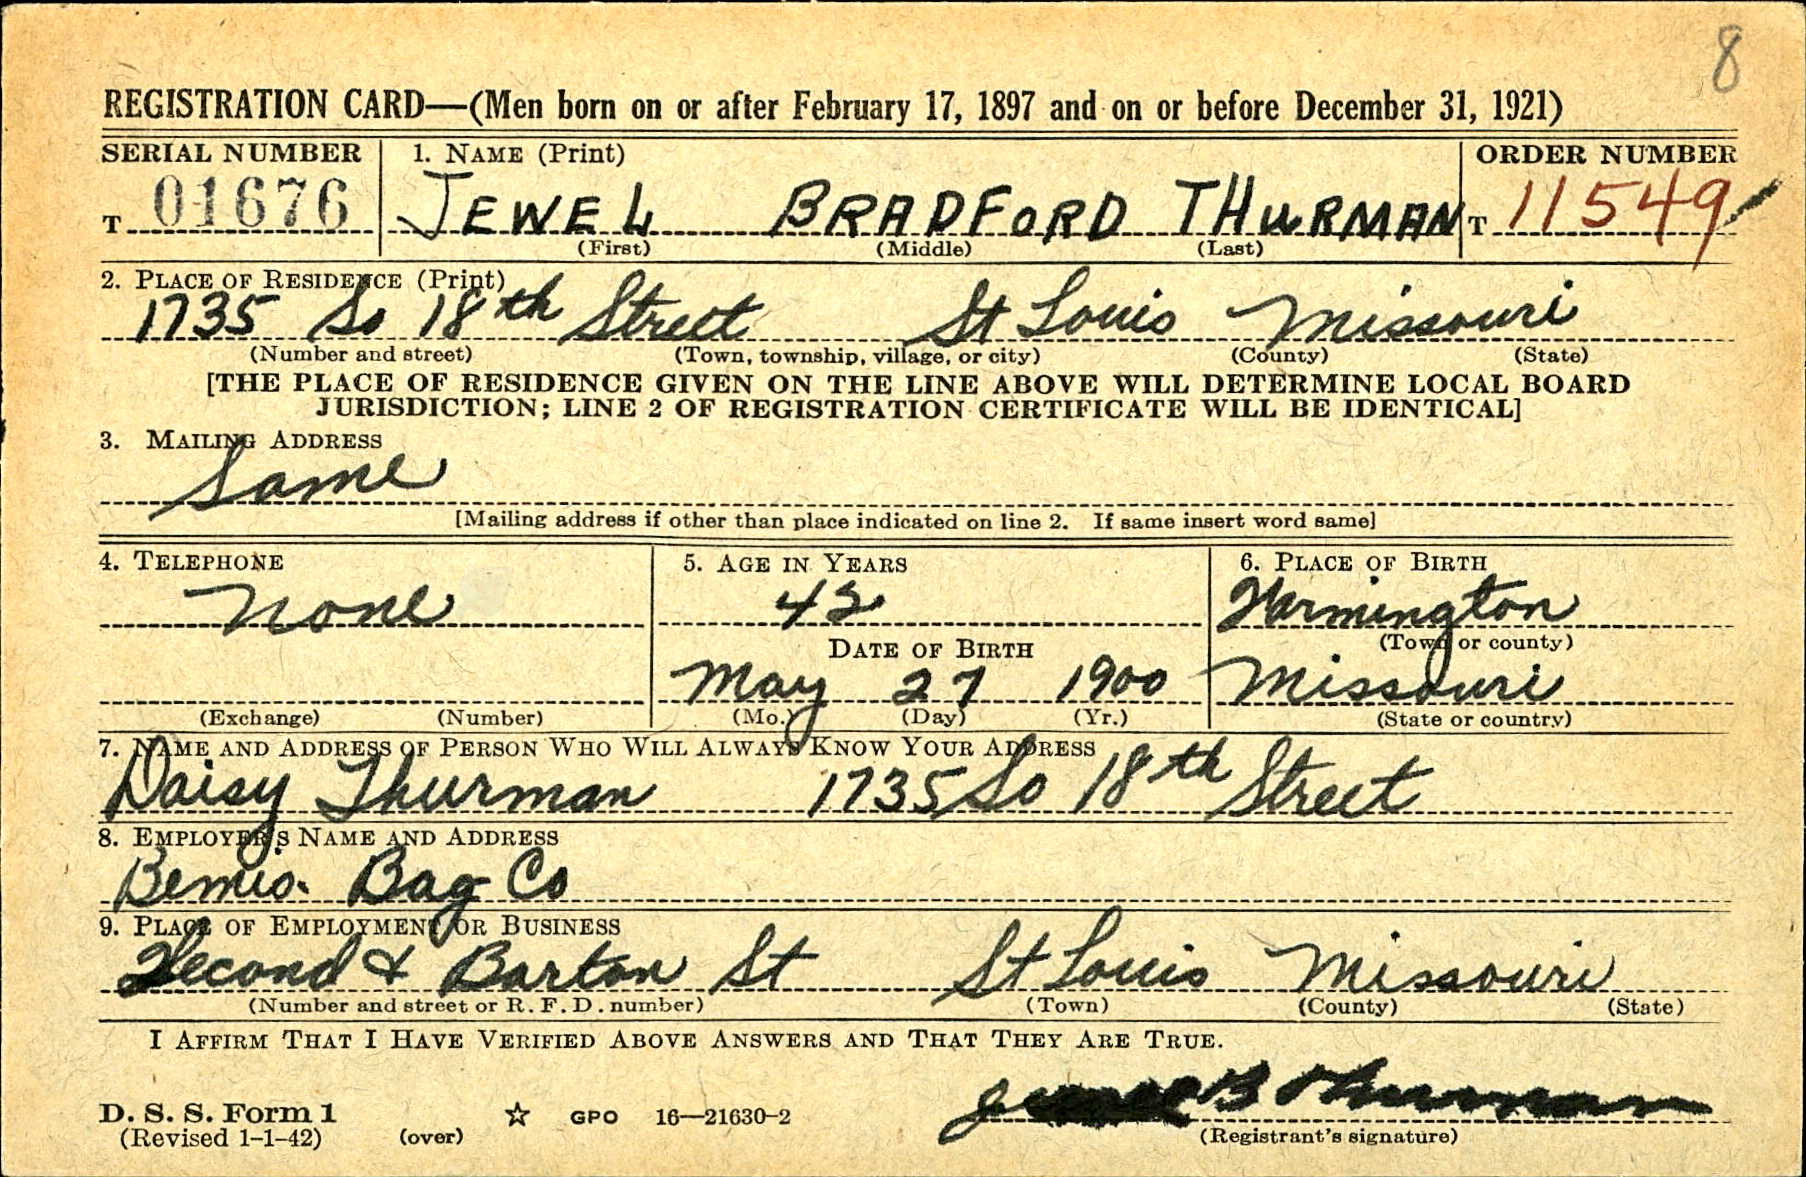 8
REGISTRATION CARD—(Men born on or after February 17, 1897 and on or before December 31, 1921)
SERIAL NUMBER 1. NAME (Print) ORDER NUMBER
T 01676 JEWEL BRADFORD THURMAN T 11549
(First) (Middle) (Last)
2. PLACE OF RESIDENCE (Print)
1735 So 18th Street St Louis Missouri
(Number and street) (Town, township, village, or city) (County) (State)
[THE PLACE OF RESIDENCE GIVEN ON THE LINE ABOVE WILL DETERMINE LOCAL BOARD
JURISDICTION; LINE 2 OF REGISTRATION CERTIFICATE WILL BE IDENTICAL]
3. MAILING ADDRESS
Same
[Mailing address if other than place indicated on line 2. If same insert word same]
4. TELEPHONE 5. AGE IN YEARS 6. PLACE OF BIRTH
None 42 Farmington
DATE OF BIRTH (Town or county)
May 27 1900 Missouri
(Exchange) (Number) (Mo.) (Day) (Yr.) (State or country)
7. NAME AND ADDRESS OF PERSON WHO WILL ALWAYS KNOW YOUR ADDRESS
Daisy Thurman 1735 So 18th Street
8. EMPLOYER'S NAME AND ADDRESS
Bemis. Bag Co
9. PLACE OF EMPLOYMENT OR BUSINESS
Second & Barton St St Louis Missouri
(Number and street or R. F. D. number) (Town) (County) (State)
I AFFIRM THAT I HAVE VERIFIED ABOVE ANSWERS AND THAT THEY ARE TRUE.
B Thurman
D. S. S. Form 1 GPO 16—21630-2
(Revised 1-1-42) (over) (Registrant's signature)